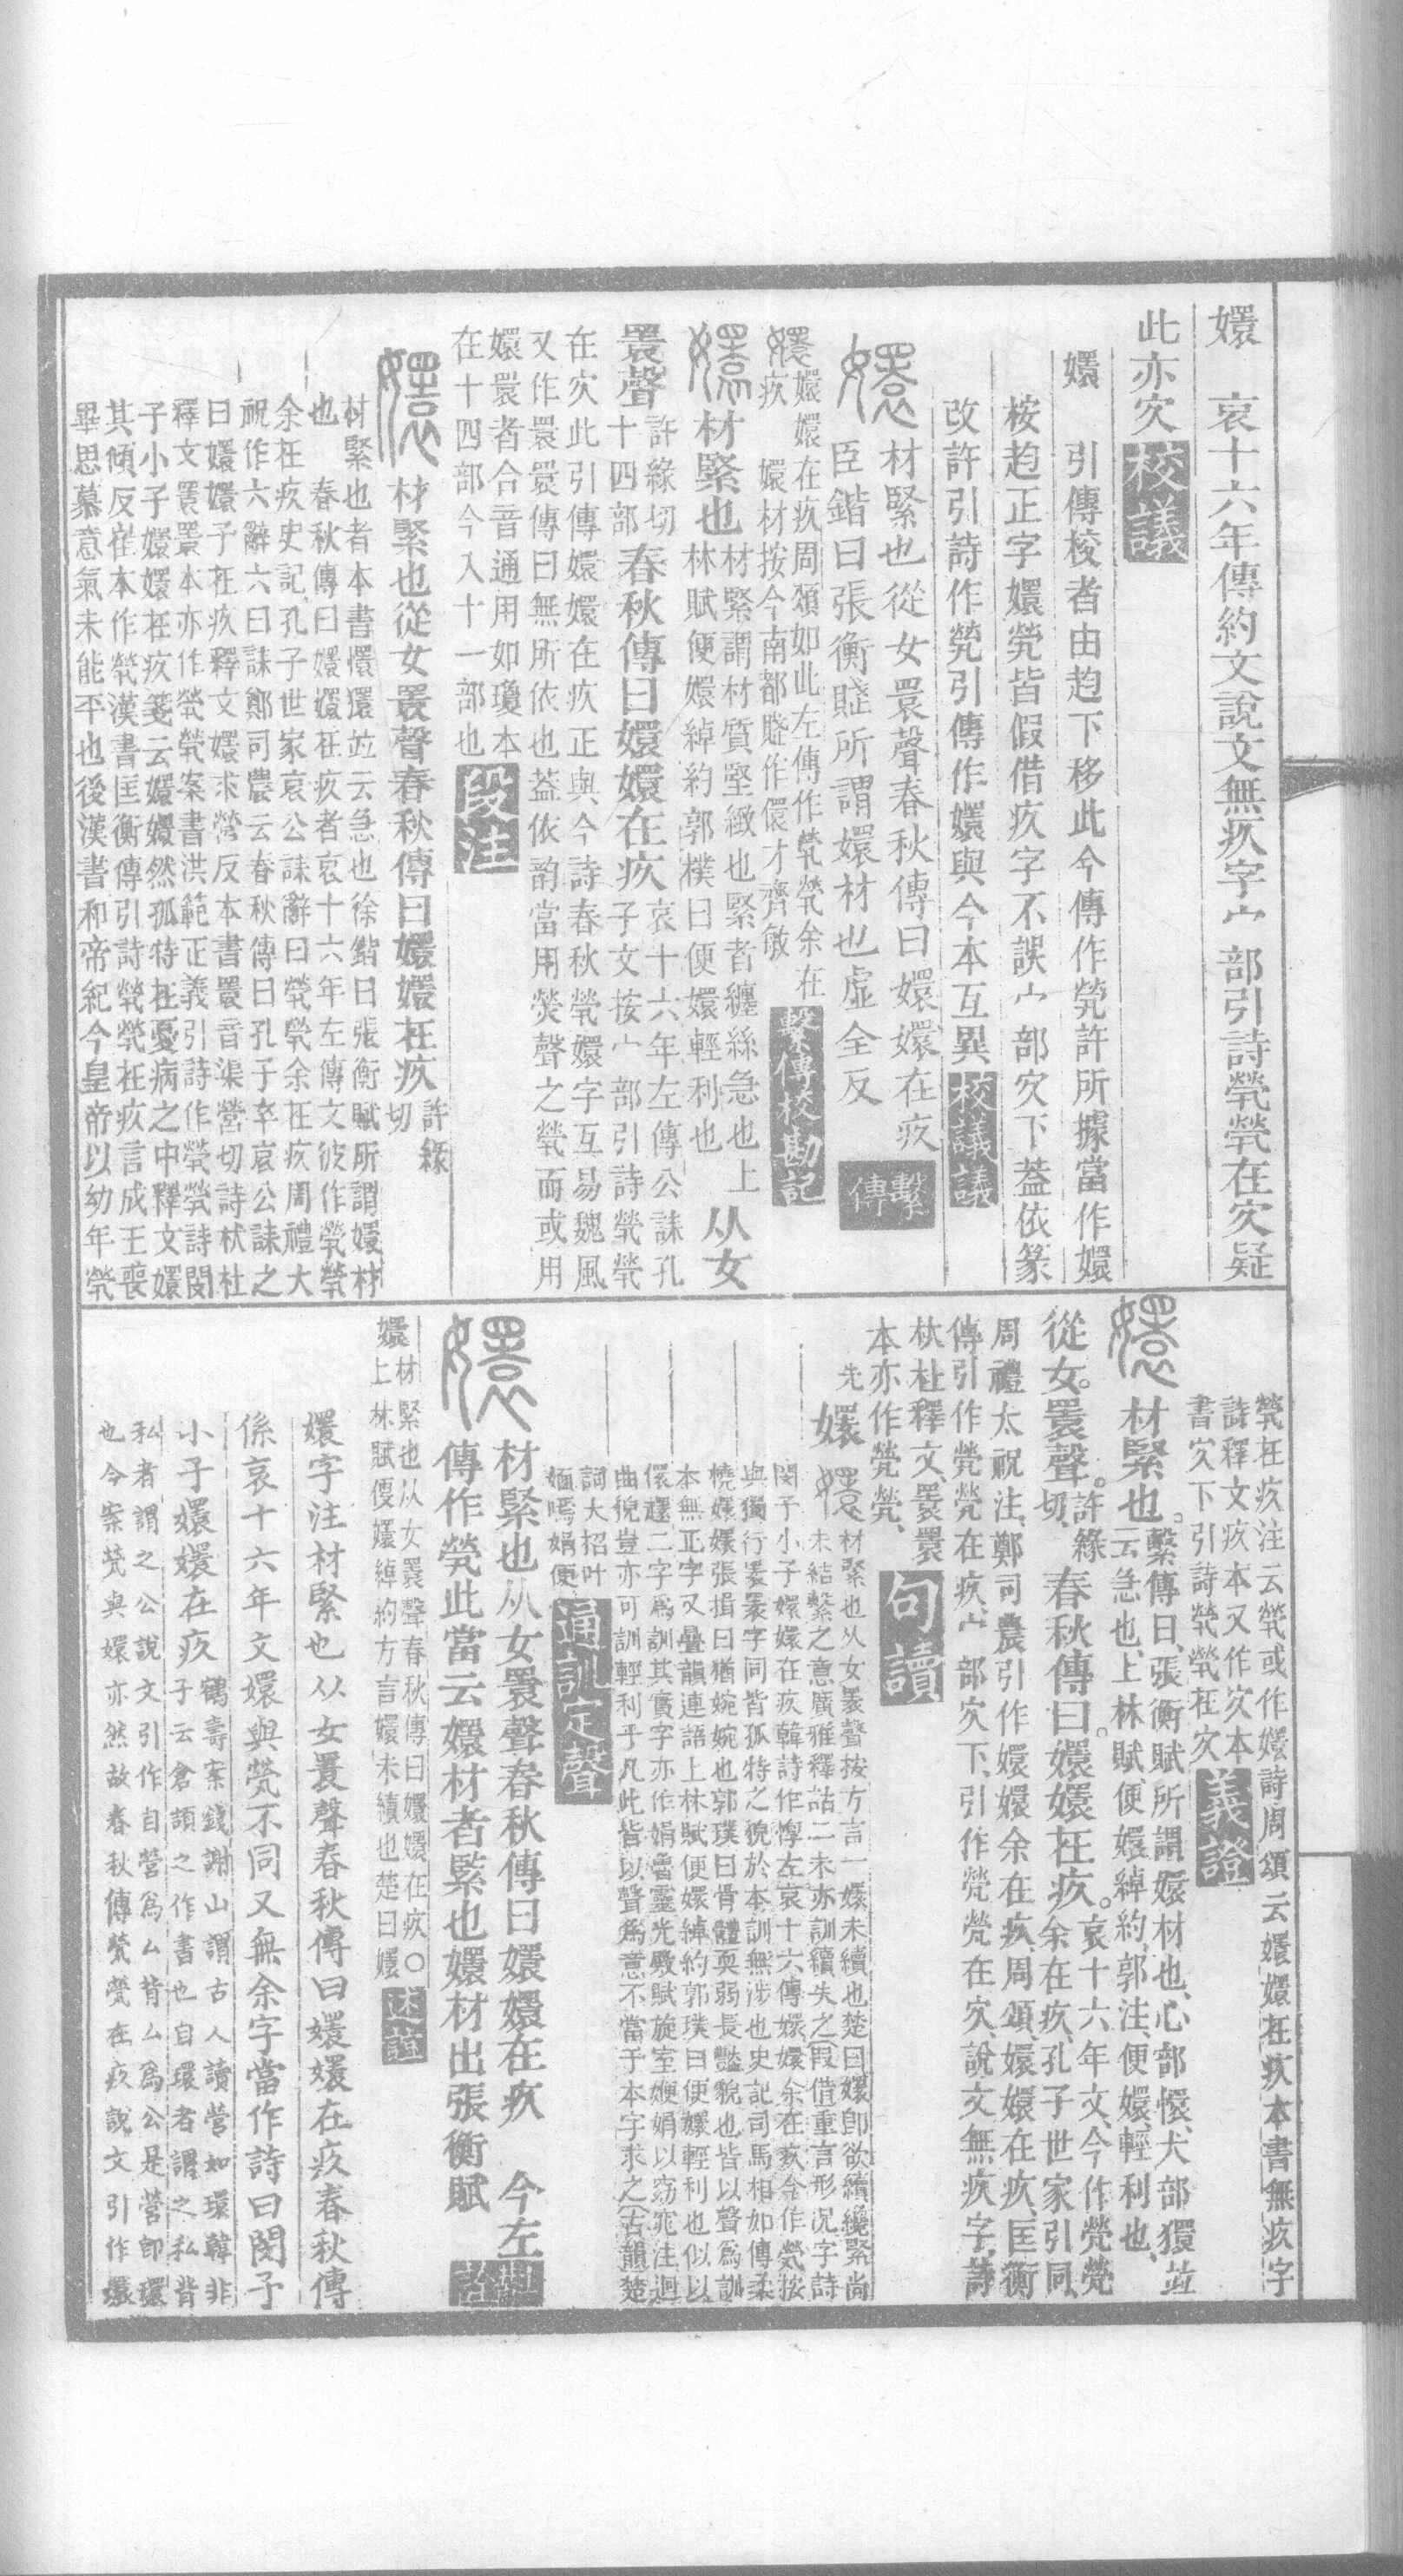 嬛　哀十六年傳約文說文無疚字宀部引詩煢煢在㝌疑
此亦㝌
校議
嬛　引傳校者由趙下移此今傳作煢許所據當作嬛
桉趙正字嬛煢皆假借疚字不誤宀部㝌下葢依篆
改許引詩作煢引傳作嬛與今本互異
校議議
材緊也從女瞏聲春秋傳曰嬛嬛在疚
臣鍇曰張衡賦所謂嬛材也虛全反
繫傳
嬛嬛在疚周頌如此左傳作煢煢余在
疚　嬛材按今南都賦作儇才齊敏
繫傳校勘記
材緊也
材緊謂材質堅緻也緊者纏絲急也上
林賦便嬛綽約郭樸曰便嬛輕利也
从女
瞏聲
許緣切
十四部
春秋傳曰嬛嬛在疚
哀十六年左傳公誄孔
子文按宀部引詩煢煢
在㝌此引傳嬛嬛在疚正與今詩春秋煢嬛字互易魏風
又作睘睘傳曰無所依也葢依韵當用熒聲之煢而或用
嬛睘者合音通用如瓊本
在十四部今入十一部也
段注
材緊也從女瞏聲春秋傳曰嬛嬛在疚
許緣
切
材緊也者本書懁獧竝云急也徐鍇曰張衡賦所謂嬛材
也　春秋傳曰嬛嬛在疚者哀十六年左傳文彼作煢煢
余在疚史記孔子世家哀公誄辭曰煢煢余在疚周禮大
祝作六辭六曰誄鄭司農云春秋傳曰孔子卒哀公誄之
曰嬛嬛予在疚釋文嬛求營反本書瞏音渠營切詩杕杜
釋文瞏瞏本亦作煢煢案書洪範正義引詩作煢煢詩閔
子小子嬛嬛在疚箋云嬛嬛然孤特在憂病之中釋文嬛
其傾反崔本作煢漢書匡衡傳引詩煢煢在疚言成王喪
畢思慕意氣未能平也後漢書和帝紀今皇帝以幼年煢
煢在疚注云煢或作嬛詩周頌云嬛嬛在疚本書無疚字
詩釋文疚本又作㝌本
書㝌下引詩煢煢在㝌
義證
材緊也。
繫傳曰、張衡賦所謂嬛材也、心部懁、犬部獧、竝
云急也、上林賦、便嬛綽約、郭注、便嬛、輕利也、
從女。瞏聲。
許緣
切、
春秋傳曰。嬛嬛在疚。
哀十六年文、今作煢煢
余在疚、孔子世家引同、
周禮太祝注、鄭司農引作嬛嬛余在疚、周頌、嬛嬛在疚、匡衡
傳引作煢煢在疚、宀部㝌下、引作煢煢在㝌、說文無疚字、詩
杕杜釋文、瞏瞏
本亦作煢煢、
句讀
先
嬛
材緊也从女瞏聲按方言一嬛未續也楚曰嬛卽欲續纔緊尚
未結繫之意廣雅釋詁二未亦訓續失之叚借重言形況字詩
閔子小子嬛嬛在疚韓詩作惸左哀十六傳嬛嬛余在疚今作煢按
與獨行瞏瞏字同皆孤特之貌於本訓無涉也史記司馬相如傳柔
橈嬛嬛張揖曰猶婉婉也郭璞曰骨體耎弱長豔貌也皆以聲爲訓
本無正字又疊韻連語上林賦便嬛綽約郭璞曰便嬛輕利也似以
儇趯二字爲訓其實字亦作娟魯靈光殿賦旋室㛹娟以窈窕注迴
曲貌豈亦可訓輕利乎凡此皆以聲爲意不當于本字求之古韻楚
詞大招叶
嫣娟便
通訓定聲
材緊也从女瞏聲春秋傳曰嬛嬛在疚　今左
傳作煢此當云嬛材者緊也嬛材出張衡賦
材緊也从女瞏聲春秋傳曰嬛嬛在疚○
嬛上林賦便嬛綽約方言嬛未續也楚曰嬛
述誼
嬛字注材緊也从女瞏聲春秋傳曰嬛嬛在疚春秋傳
係哀十六年文嬛與煢不同又無余字當作詩曰閔予
小子嬛嬛在疚
鶴壽案錢謝山謂古人讀營如環韓非
子云倉頡之作書也自環者謂之私背
私者謂之公說文引作自營爲厶背厶爲公是營卽環
也今案煢與嬛亦然故春秋傳煢煢在疚說文引作嬛